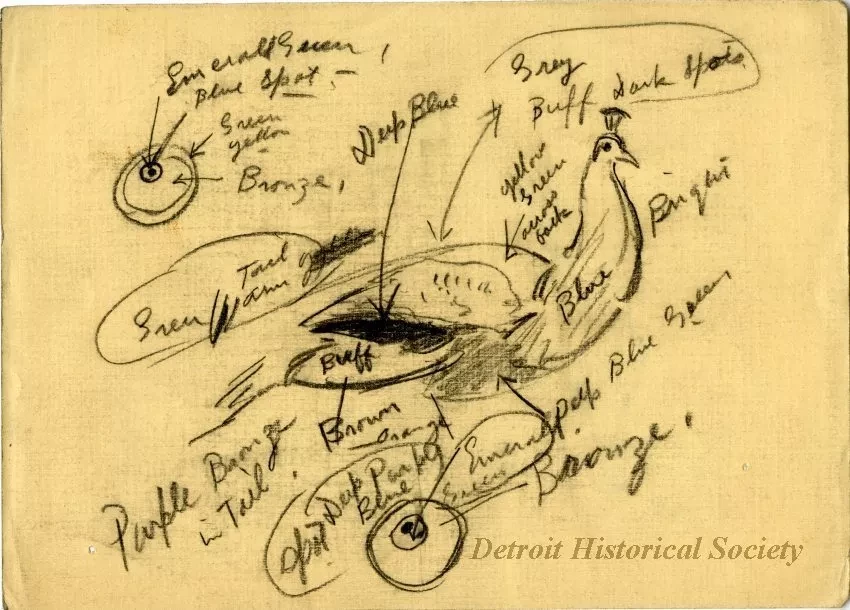 Emerald Green,
Blue Spot -
Green
yellow
Bronze,
Deep Blue
Grey
Buff Dark Spots
yellow
Green
across
back
Bright
Blue
Tail
Green
Buff
Brown
Orange
Deep Blue Green
Emerald
Green
Bronze,
Purple Bronze
in Tail.
Spot Deep Purple
Blue
Detroit Historical Society